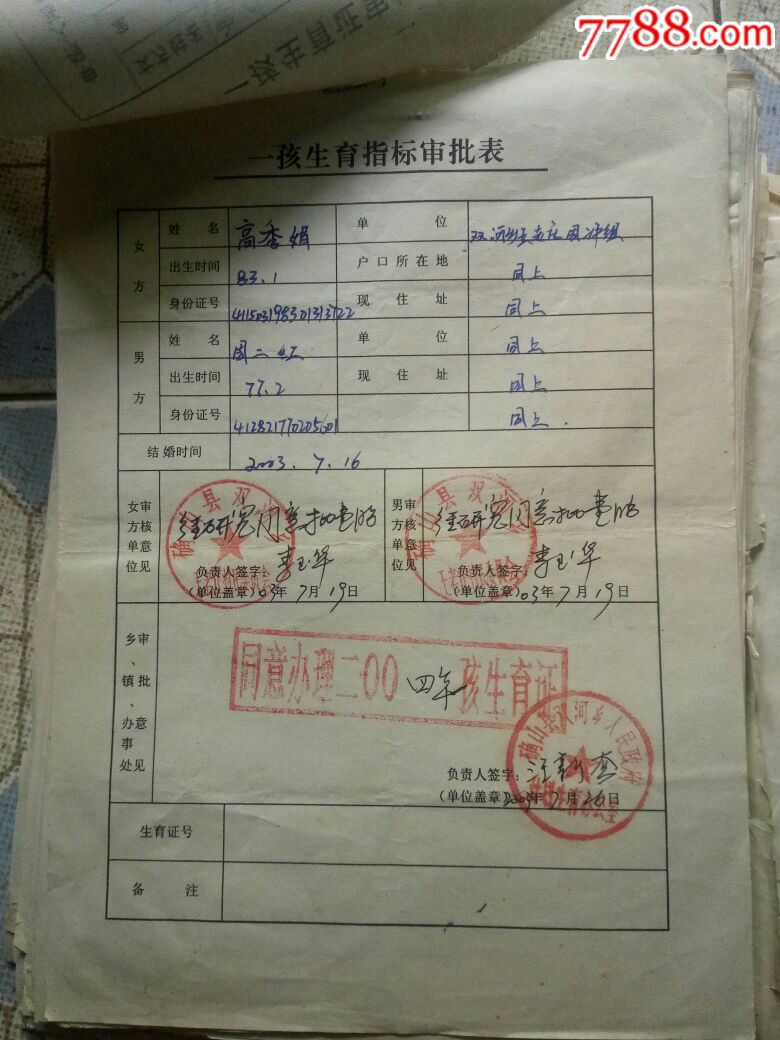 7788.com
一孩生育指标审批表
女方 姓名 高秀娟 单位 双河
出生时间 83.1 户口所在地 同上
身份证号 现住址 同上
男方 姓名 周二红 单位 同上
出生时间 77.2 现住址 同上
身份证号 412821770205601 同上.
结婚时间 2003.7.16
女方单位审核意见 经研究同意 男方单位审核意见 经研究同意
负责人签字: 李玉华 负责人签字: 李玉华
(单位盖章) 03年7月19日 (单位盖章) 03年7月19日
乡、镇、办事处审批意见
同意办理二00四年一孩生育证
确山县双河乡人民政府
计划生育办公室
负责人签字:
(单位盖章) 2003年7月20日
生育证号
备注